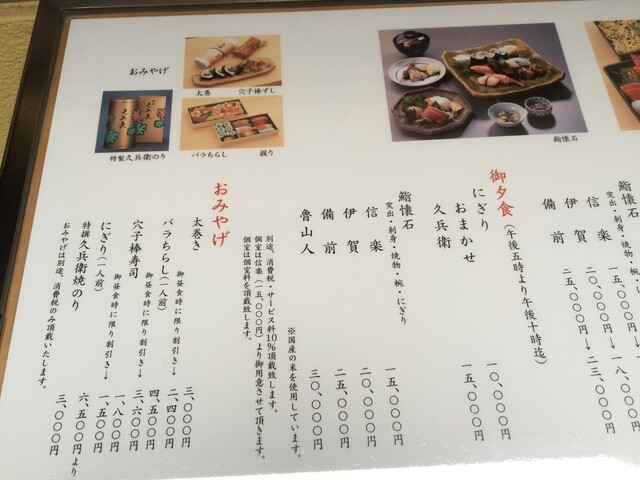 おみやげ
太巻
穴子棒ずし
特製久兵衛のり
バラちらし
握り
鮨懐石
突出・刺身・焼物・椀・に
信楽 一五、〇〇〇円
伊賀 二〇、〇〇〇円→一八、〇〇〇円
備前 二五、〇〇〇円→二三、〇〇〇円
御夕食(午後五時より午後十時迄)
にぎり 一〇、〇〇〇円
おまかせ
久兵衛 一五、〇〇〇円
鮨懐石
突出・刺身・焼物・椀・にぎり
信楽 一五、〇〇〇円
伊賀 二〇、〇〇〇円
備前 二五、〇〇〇円
魯山人 三〇、〇〇〇円
※国産の米を使用しています。
別途、消費税・サービス料10%頂戴致します。
個室は信楽(一五、〇〇〇円)より御用意させて頂きます。
個室は個室料を頂戴致します。
おみやげ
太巻き 三、〇〇〇円
御昼食時に限り割引き→ 二、四〇〇円
バラちらし(一人前) 四、五〇〇円
御昼食時に限り割引き→ 三、六〇〇円
穴子棒寿司 一、八〇〇円
御昼食時に限り割引き→ 一、五〇〇円
にぎり(一人前) 六、五〇〇円より
特撰久兵衛焼のり 三、〇〇〇円
おみやげは別途、消費税のみ頂戴いたします。